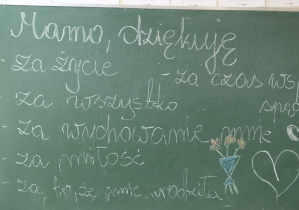 Mamo, dziękuję
- za życie
- za czas
za wszystko
- za wychowanie mnie
- za miłość
- za to, że mnie urodziła